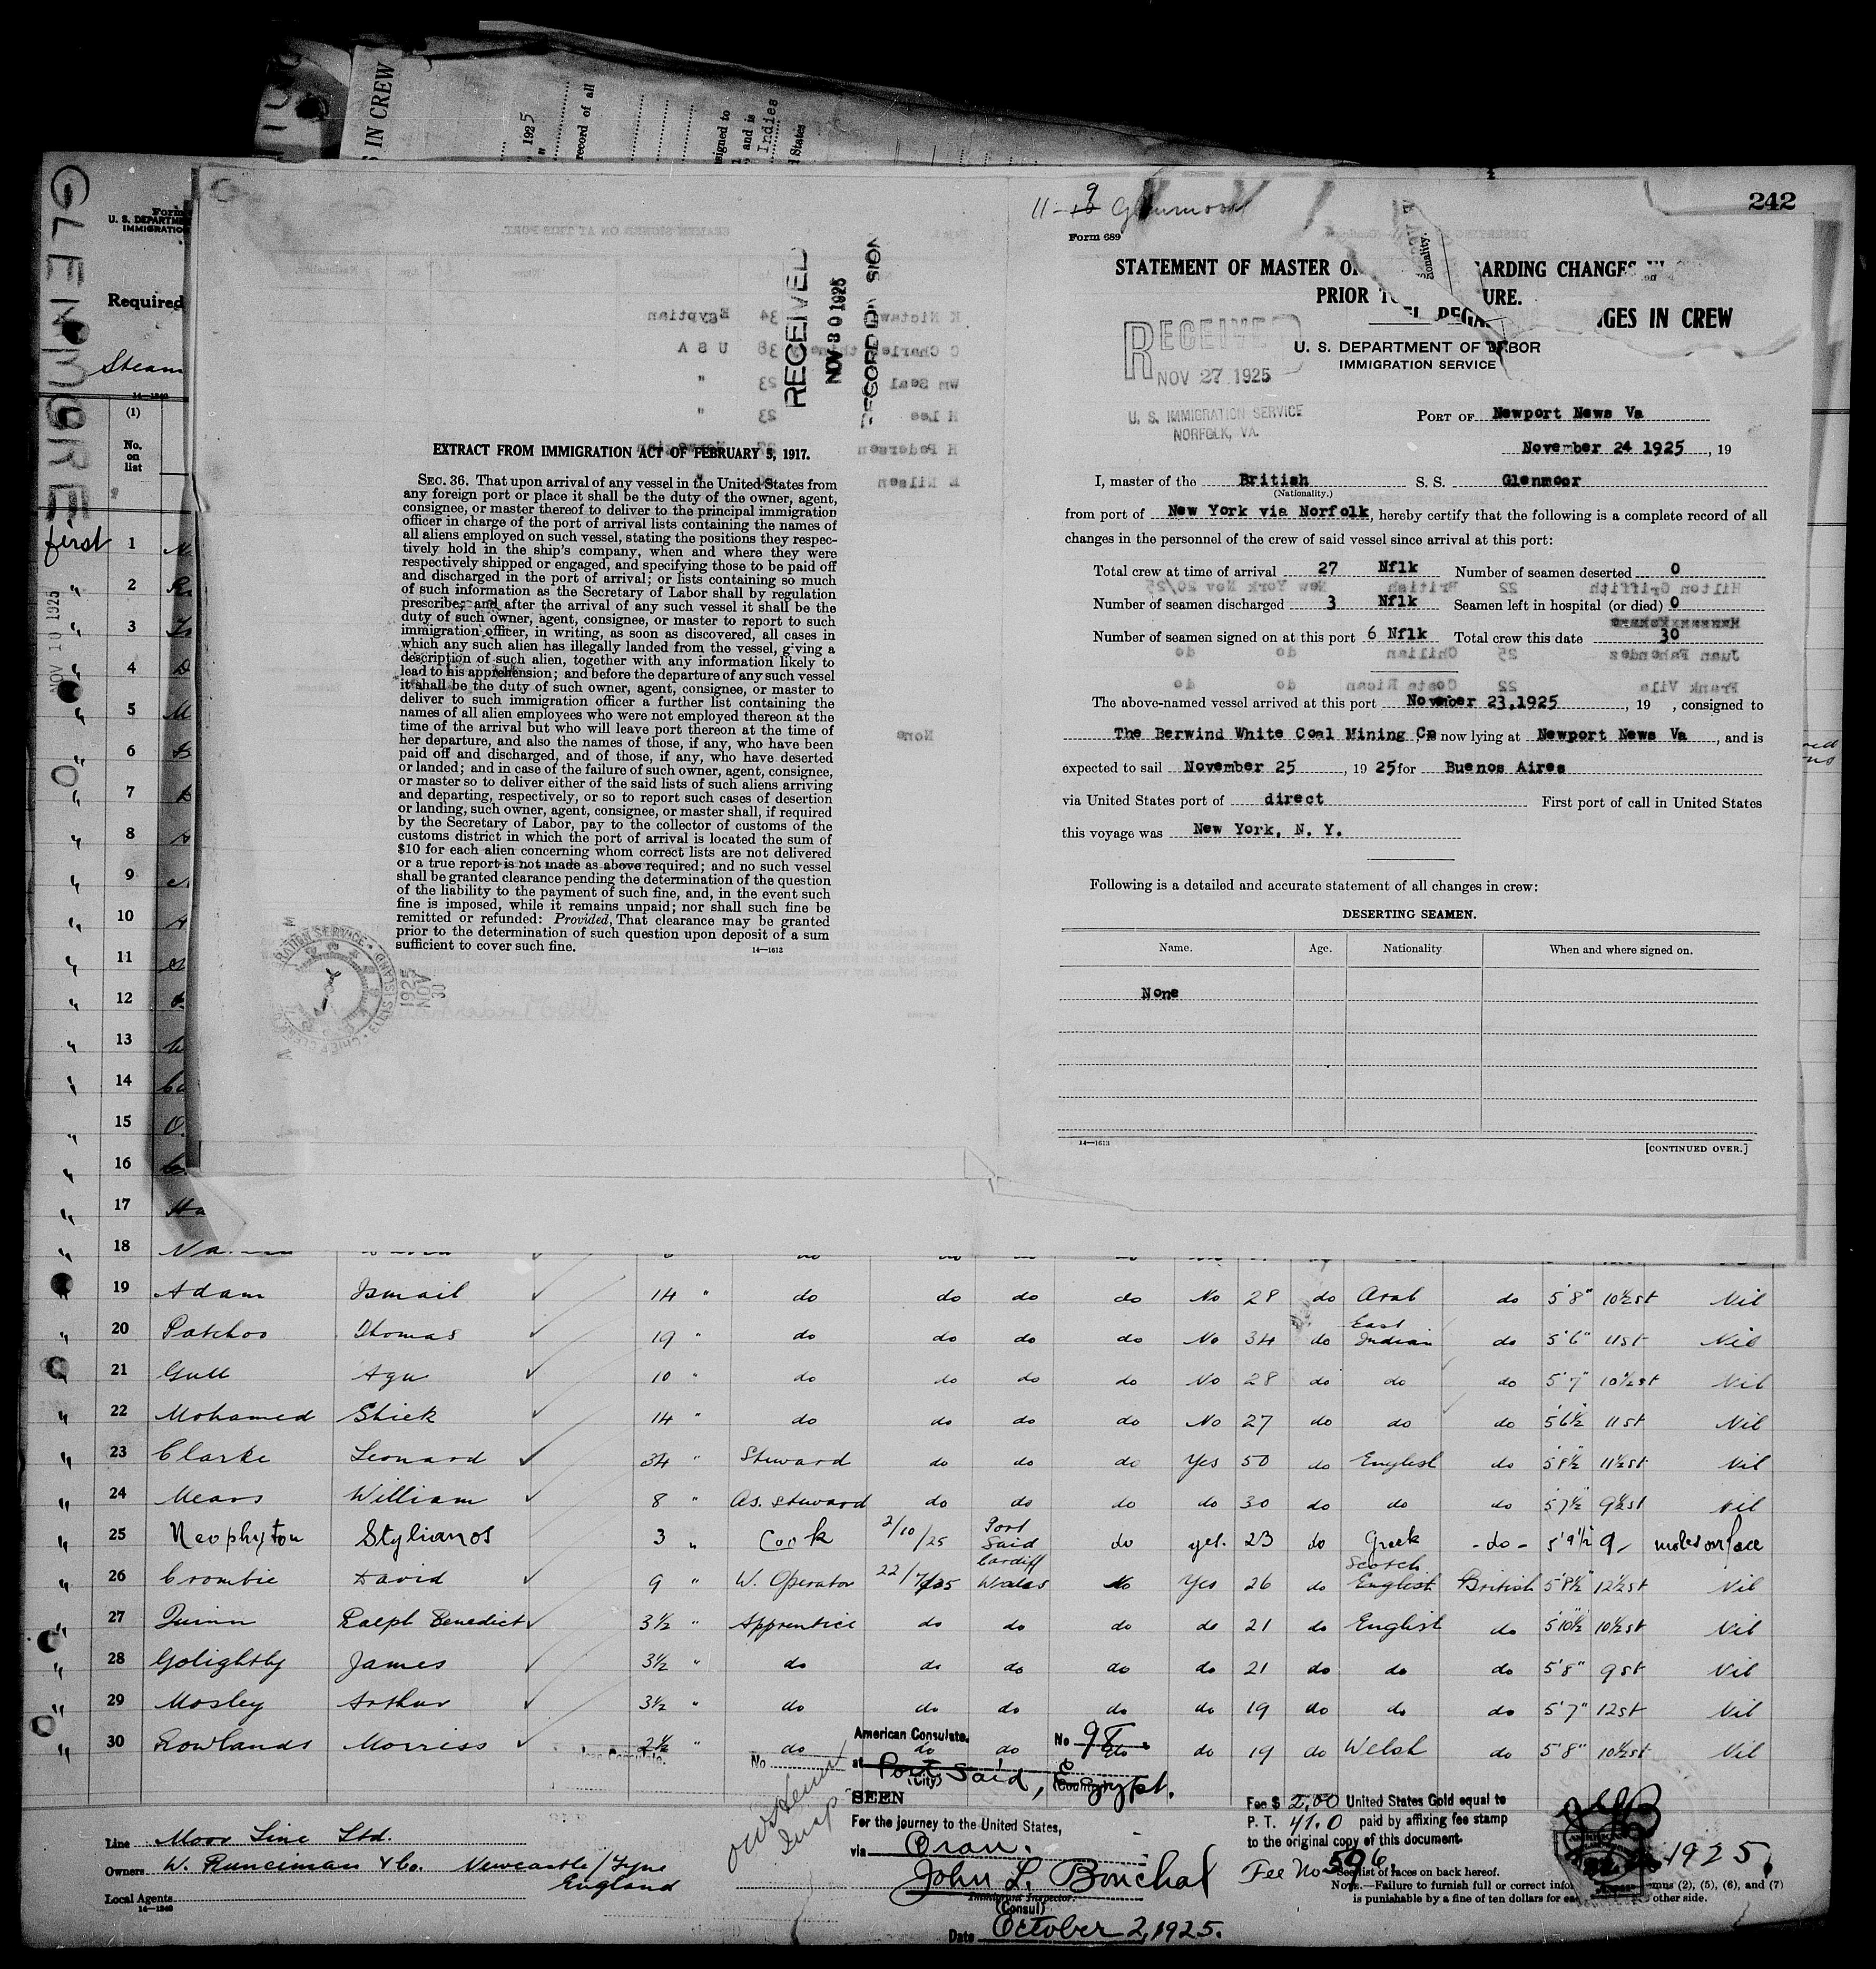 S IN CREW
1925
record of all
signed to
and is
Indies
d States
GLENMORE
Form
U. S. DEPARTME
IMMIGRATIO
Required
Steam
14—1240
(1)
No.
on
list
first
NOV 10 1925
RECEIVED
NOV 30 1925
RECORD DIVISION
EXTRACT FROM IMMIGRATION ACT OF FEBRUARY 5, 1917.
SEC. 36. That upon arrival of any vessel in the United States from
any foreign port or place it shall be the duty of the owner, agent,
consignee, or master thereof to deliver to the principal immigration
officer in charge of the port of arrival lists containing the names of
all aliens employed on such vessel, stating the positions they respec-
tively hold in the ship's company, when and where they were
respectively shipped or engaged, and specifying those to be paid off
and discharged in the port of arrival; or lists containing so much
of such information as the Secretary of Labor shall by regulation
prescribe; and after the arrival of any such vessel it shall be the
duty of such owner, agent, consignee, or master to report to such
immigration officer, in writing, as soon as discovered, all cases in
which any such alien has illegally landed from the vessel, giving a
description of such alien, together with any information likely to
lead to his apprehension; and before the departure of any such vessel
it shall be the duty of such owner, agent, consignee, or master to
deliver to such immigration officer a further list containing the
names of all alien employees who were not employed thereon at the
time of the arrival but who will leave port thereon at the time of
her departure, and also the names of those, if any, who have been
paid off and discharged, and of those, if any, who have deserted
or landed; and in case of the failure of such owner, agent, consignee,
or master so to deliver either of the said lists of such aliens arriving
and departing, respectively, or so to report such cases of desertion
or landing, such owner, agent, consignee, or master shall, if required
by the Secretary of Labor, pay to the collector of customs of the
customs district in which the port of arrival is located the sum of
$10 for each alien concerning whom correct lists are not delivered
or a true report is not made as above required; and no such vessel
shall be granted clearance pending the determination of the question
of the liability to the payment of such fine, and, in the event such
fine is imposed, while it remains unpaid; nor shall such fine be
remitted or refunded: Provided, That clearance may be granted
prior to the determination of such question upon deposit of a sum
sufficient to cover such fine.
14—1613
1925
NOV
30
242
11-9 Glenmoor
Form 689
STATEMENT OF MASTER O ARDING CHANGES
PRIOR T URE.
EL REGA NGES IN CREW
RECEIVED
NOV 27 1925
U. S. IMMIGRATION SERVICE
NORFOLK, VA.
U. S. DEPARTMENT OF LABOR
IMMIGRATION SERVICE
PORT OF Newport News Va
November 24 1925, 19
I, master of the British S. S. Glenmoor
(Nationality.)
from port of New York via Norfolk, hereby certify that the following is a complete record of all
changes in the personnel of the crew of said vessel since arrival at this port:
Total crew at time of arrival 27 Nflk Number of seamen deserted 0
Number of seamen discharged 3 Nflk Seamen left in hospital (or died) 0
Number of seamen signed on at this port 6 Nflk Total crew this date 30
The above-named vessel arrived at this port November 23,1925, 19 , consigned to
The Berwind White Coal Mining Co now lying at Newport News Va, and is
expected to sail November 25, 1925 for Buenos Aires
via United States port of direct First port of call in United States
this voyage was New York, N. Y.
Following is a detailed and accurate statement of all changes in crew:
DESERTING SEAMEN.
Name. Age. Nationality When and where signed on.
None
14—1613
[CONTINUED OVER.]
1
2
3
4
5
6
7
8
9
10
11
12
13
14
15
16
17
18
19 Adam Ismail 14 " do do do do No 28 do Arab do 5'8" 10½st Nil
20 Patchoo Thomas 19 " do do do do No 34 do East Indian do 5'6" 11st Nil
21 Gull Agu 10 " do do do do No 28 do do do 5'7" 10½st Nil
22 Mohamed Shiek 14 " do do do do No 27 do do do 5'6½ 11st Nil
23 Clarke Leonard 34 " Steward do do do Yes 50 do English do 5'8½ 11½st Nil
24 Mears William 8 " As. Steward do do do do 30 do do do 5'7½" 9½st Nil
25 Neophyton Stylianos 3 " Cook 2/10/25 Port Said do yes. 23 do Greek - do - 5'9½ 9- moles on face
26 Crombie David 9 " W. Operator 22/7/25 Cardiff Wales No Yes 26 do Scotch English British 5'8½" 12½st Nil
27 Quinn Ralph Benedict 3½ " Apprentice do do do do 21 do English do 5'10½ 10½st Nil
28 Golightly James 3½ " do do do do do 21 do do do 5'8" 9st Nil
29 Mosley Arthur 3½ " do do do do do 19 do do do 5'7" 12st Nil
30 Rowlands Morriss 2½ " do do do do do 19 do Welsh do 5'8" 10½st Nil
American Consulate. No 98.
at Port Said, Egypt.
(City) (Country)
SEEN
For the journey to the United States,
via Oran.
John L. Bouchal
Immigrant Inspector.
(Consul)
Date October 2, 1925.
Fee $ 2.00 United States Gold equal to
P. T. 41.0 paid by affixing fee stamp
to the original copy of this document.
Fee No 596.
See list of races on back hereof.
NOTE.—Failure to furnish full or correct infor mns (2), (5), (6), and (7)
is punishable by a fine of ten dollars for ea other side.
1925.
Line Moor Line Ltd.
Owners W. Runciman & Co. Newcastle/Tyne
England
Local Agents
14—1240